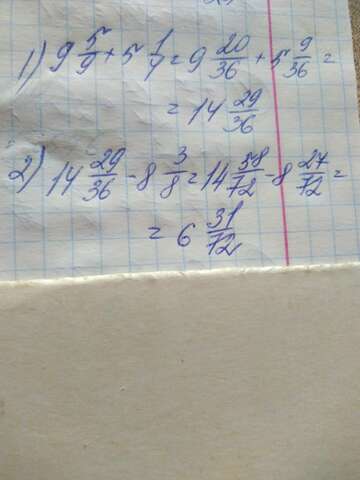 1) 9 5/9 + 5 1/4 = 9 20/36 + 5 9/36 =
= 14 29/36
2) 14 29/36 - 8 3/8 = 14 58/72 - 8 27/72 =
= 6 31/72